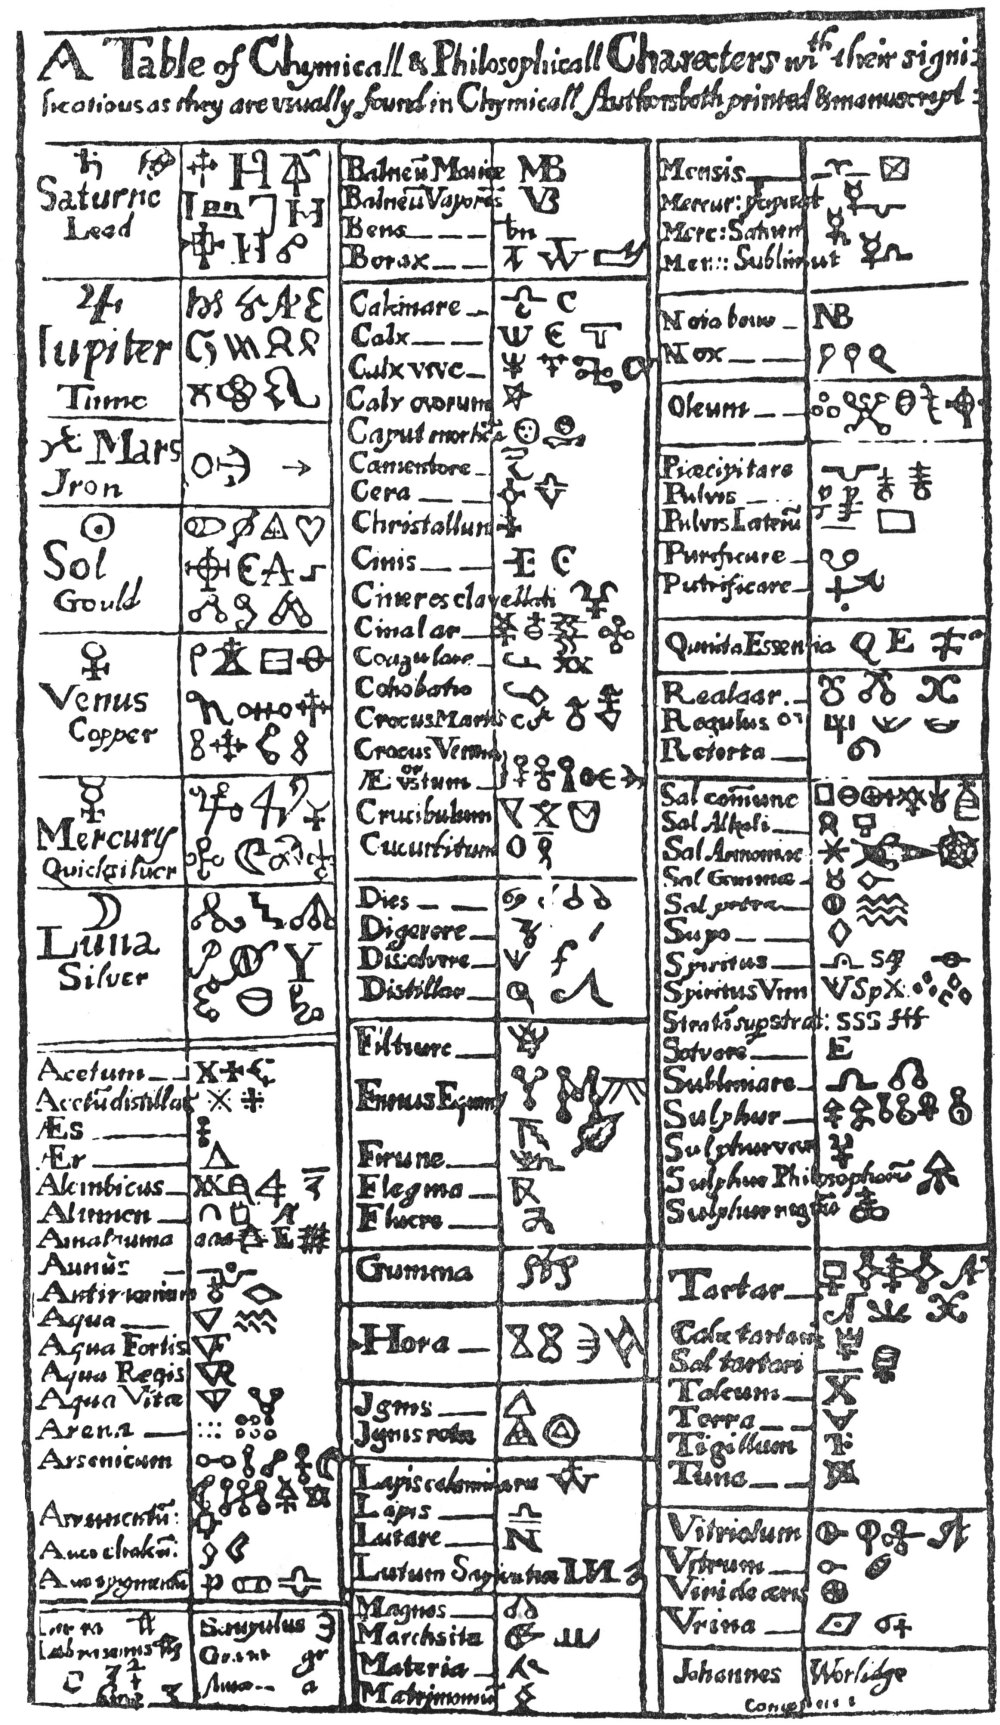 A Table of Chymicall & Philosophicall Charecters wth their signi:
fications as they are vsually found in Chymicall Authors both printed & manuscript:
Saturne
Lead
Iupiter
Tinne
Mars
Jron
Sol
Gould
Venus
Copper
Mercury
Quicksiluer
Luna
Silver
Acetum
Acetũ distillat
Æs
Ær
Alembicus
Alumen
Amalgama
Antimonium
Aqua
Aqua Fortis
Aqua Regis
Aqua Vitæ
Arena
Arsenicum
Scrupulus
gr
a
Balneũ Mariæ MB
Balneũ Vapores VB
Bene bn
Borax
Calcinare
Calx
Calx vive
Calx ovorum
Caput mortũ
Camentare
Cera
Christallum
Cinis
Cineres clavellati
Cinabar
Coagulare
Cohobatio
Crocus Martis
Crocus Veneris
or
Æ: vstum
Crucibulum
Cucurbitum
Dies
Digerere
Disolvere
Distillar
Filtrare
Fimus Equin
Flegma
Fluere
Gumma
Hora
Jgnis
Jgnis rota
Lapis calaminaru
Lapis
Lutare
Lutum Sapientiæ
Magnes
Marchsita
Materia
Matrimoniũ
Mensis
Mercur: præcipitat
Merc: Saturn
Mer::: Sublimat
Nota bene NB
Nox
Oleum
Præcipitare
Pulvis
Pulvis Laterũ
Purificare
Putrificare
Quinta Essentia Q E
Realgar
Regulus
Retorta
Sal com̃une
Sal Alkali
Sal Armoniac
Sal Gemmæ
Sal petra
Sapo
Spiritus
Spiritus Vini
Stratũ sup strat: SSS
Solvere E
Sublimare
Sulphur
Sulphur vive
Sulphur Philosophorũ
Sulphur nigrũ
Tartar
Calx tartari
Sal tartari
Talcum
Terra
Tigillum
Vitriolum
Vitrum
Viride æris
Vrina
Johannes Worlidge